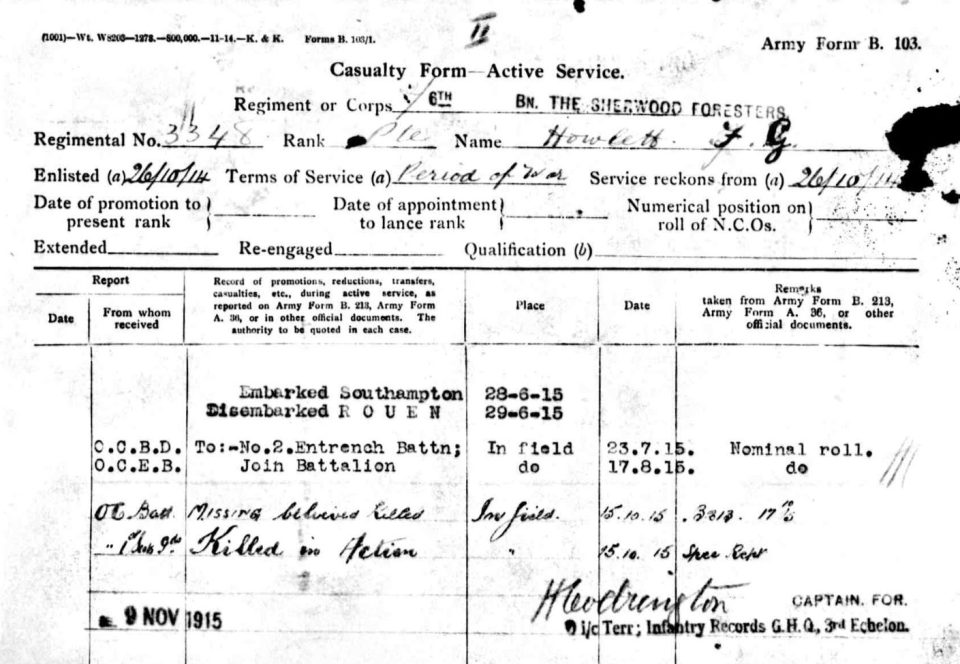 II
(1001)—Wt. W8203—1278.—800,000.—11-14.—K. & K. Forms B. 103/1.
Army Form B. 103.
Casualty Form—Active Service.
Regiment or Corps 6TH BN. THE SHERWOOD FORESTERS
Regimental No. 3348 Rank Pte Name Howlett F. G.
Enlisted (a) 26/10/14 Terms of Service (a) Period of War Service reckons from (a) 26/10/14
Date of promotion to present rank
Date of appointment to lance rank
Numerical position on roll of N.C.Os.
Extended Re-engaged Qualification (b)
Report
Date
From whom received
Record of promotions, reductions, transfers,
casualties, etc., during active service, as
reported on Army Form B. 213, Army Form
A. 36, or in other official documents. The
authority to be quoted in each case.
Place
Date
Remarks
taken from Army Form B. 213,
Army Form A. 36, or other
official documents.
Embarked Southampton 28-6-15
Disembarked ROUEN 29-6-15
C.C.B.D. To:-No.2.Entrench Battn; In field 23.7.15. Nominal roll.
O.C.E.B. Join Battalion do 17.8.15. do
OC Batt. Missing believed killed In field. 15.10.15
Killed in Action " 15.10.15 Spec Rept
9 NOV 1915
CAPTAIN. FOR.
i/c Terr; Infantry Records G.H.Q., 3rd Echelon.